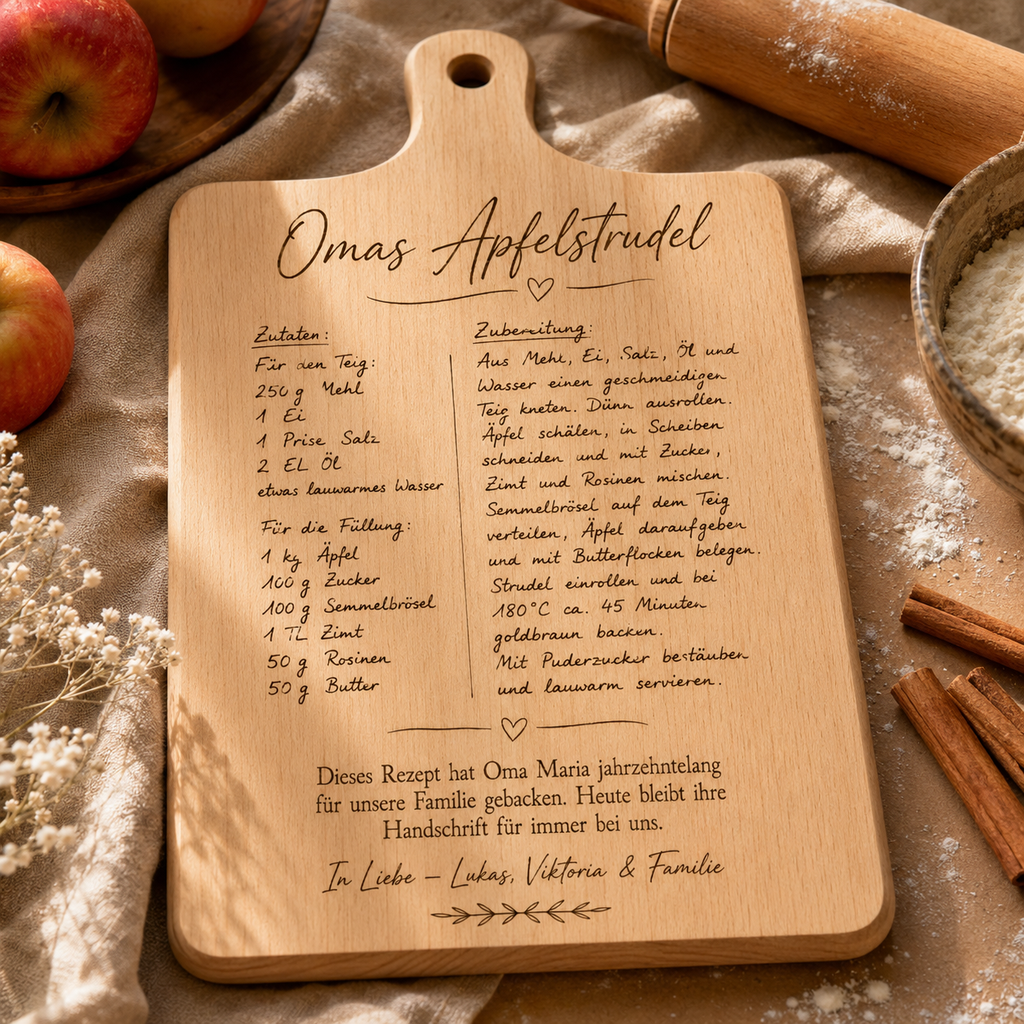 Omas Apfelstrudel
Zutaten:
Für den Teig:
250 g Mehl
1 Ei
1 Prise Salz
2 EL Öl
etwas lauwarmes Wasser
Für die Füllung:
1 kg Äpfel
100 g Zucker
100 g Semmelbrösel
1 TL Zimt
50 g Rosinen
50 g Butter
Zubereitung:
Aus Mehl, Ei, Salz, Öl und
Wasser einen geschmeidigen
Teig kneten. Dünn ausrollen.
Äpfel schälen, in Scheiben
schneiden und mit Zucker,
Zimt und Rosinen mischen.
Semmelbrösel auf dem Teig
verteilen, Äpfel daraufgeben
und mit Butterflocken belegen.
Strudel einrollen und bei
180°C ca. 45 Minuten
goldbraun backen.
Mit Puderzucker bestäuben
und lauwarm servieren.
Dieses Rezept hat Oma Maria jahrzehntelang
für unsere Familie gebacken. Heute bleibt ihre
Handschrift für immer bei uns.
In Liebe – Lukas, Viktoria & Familie